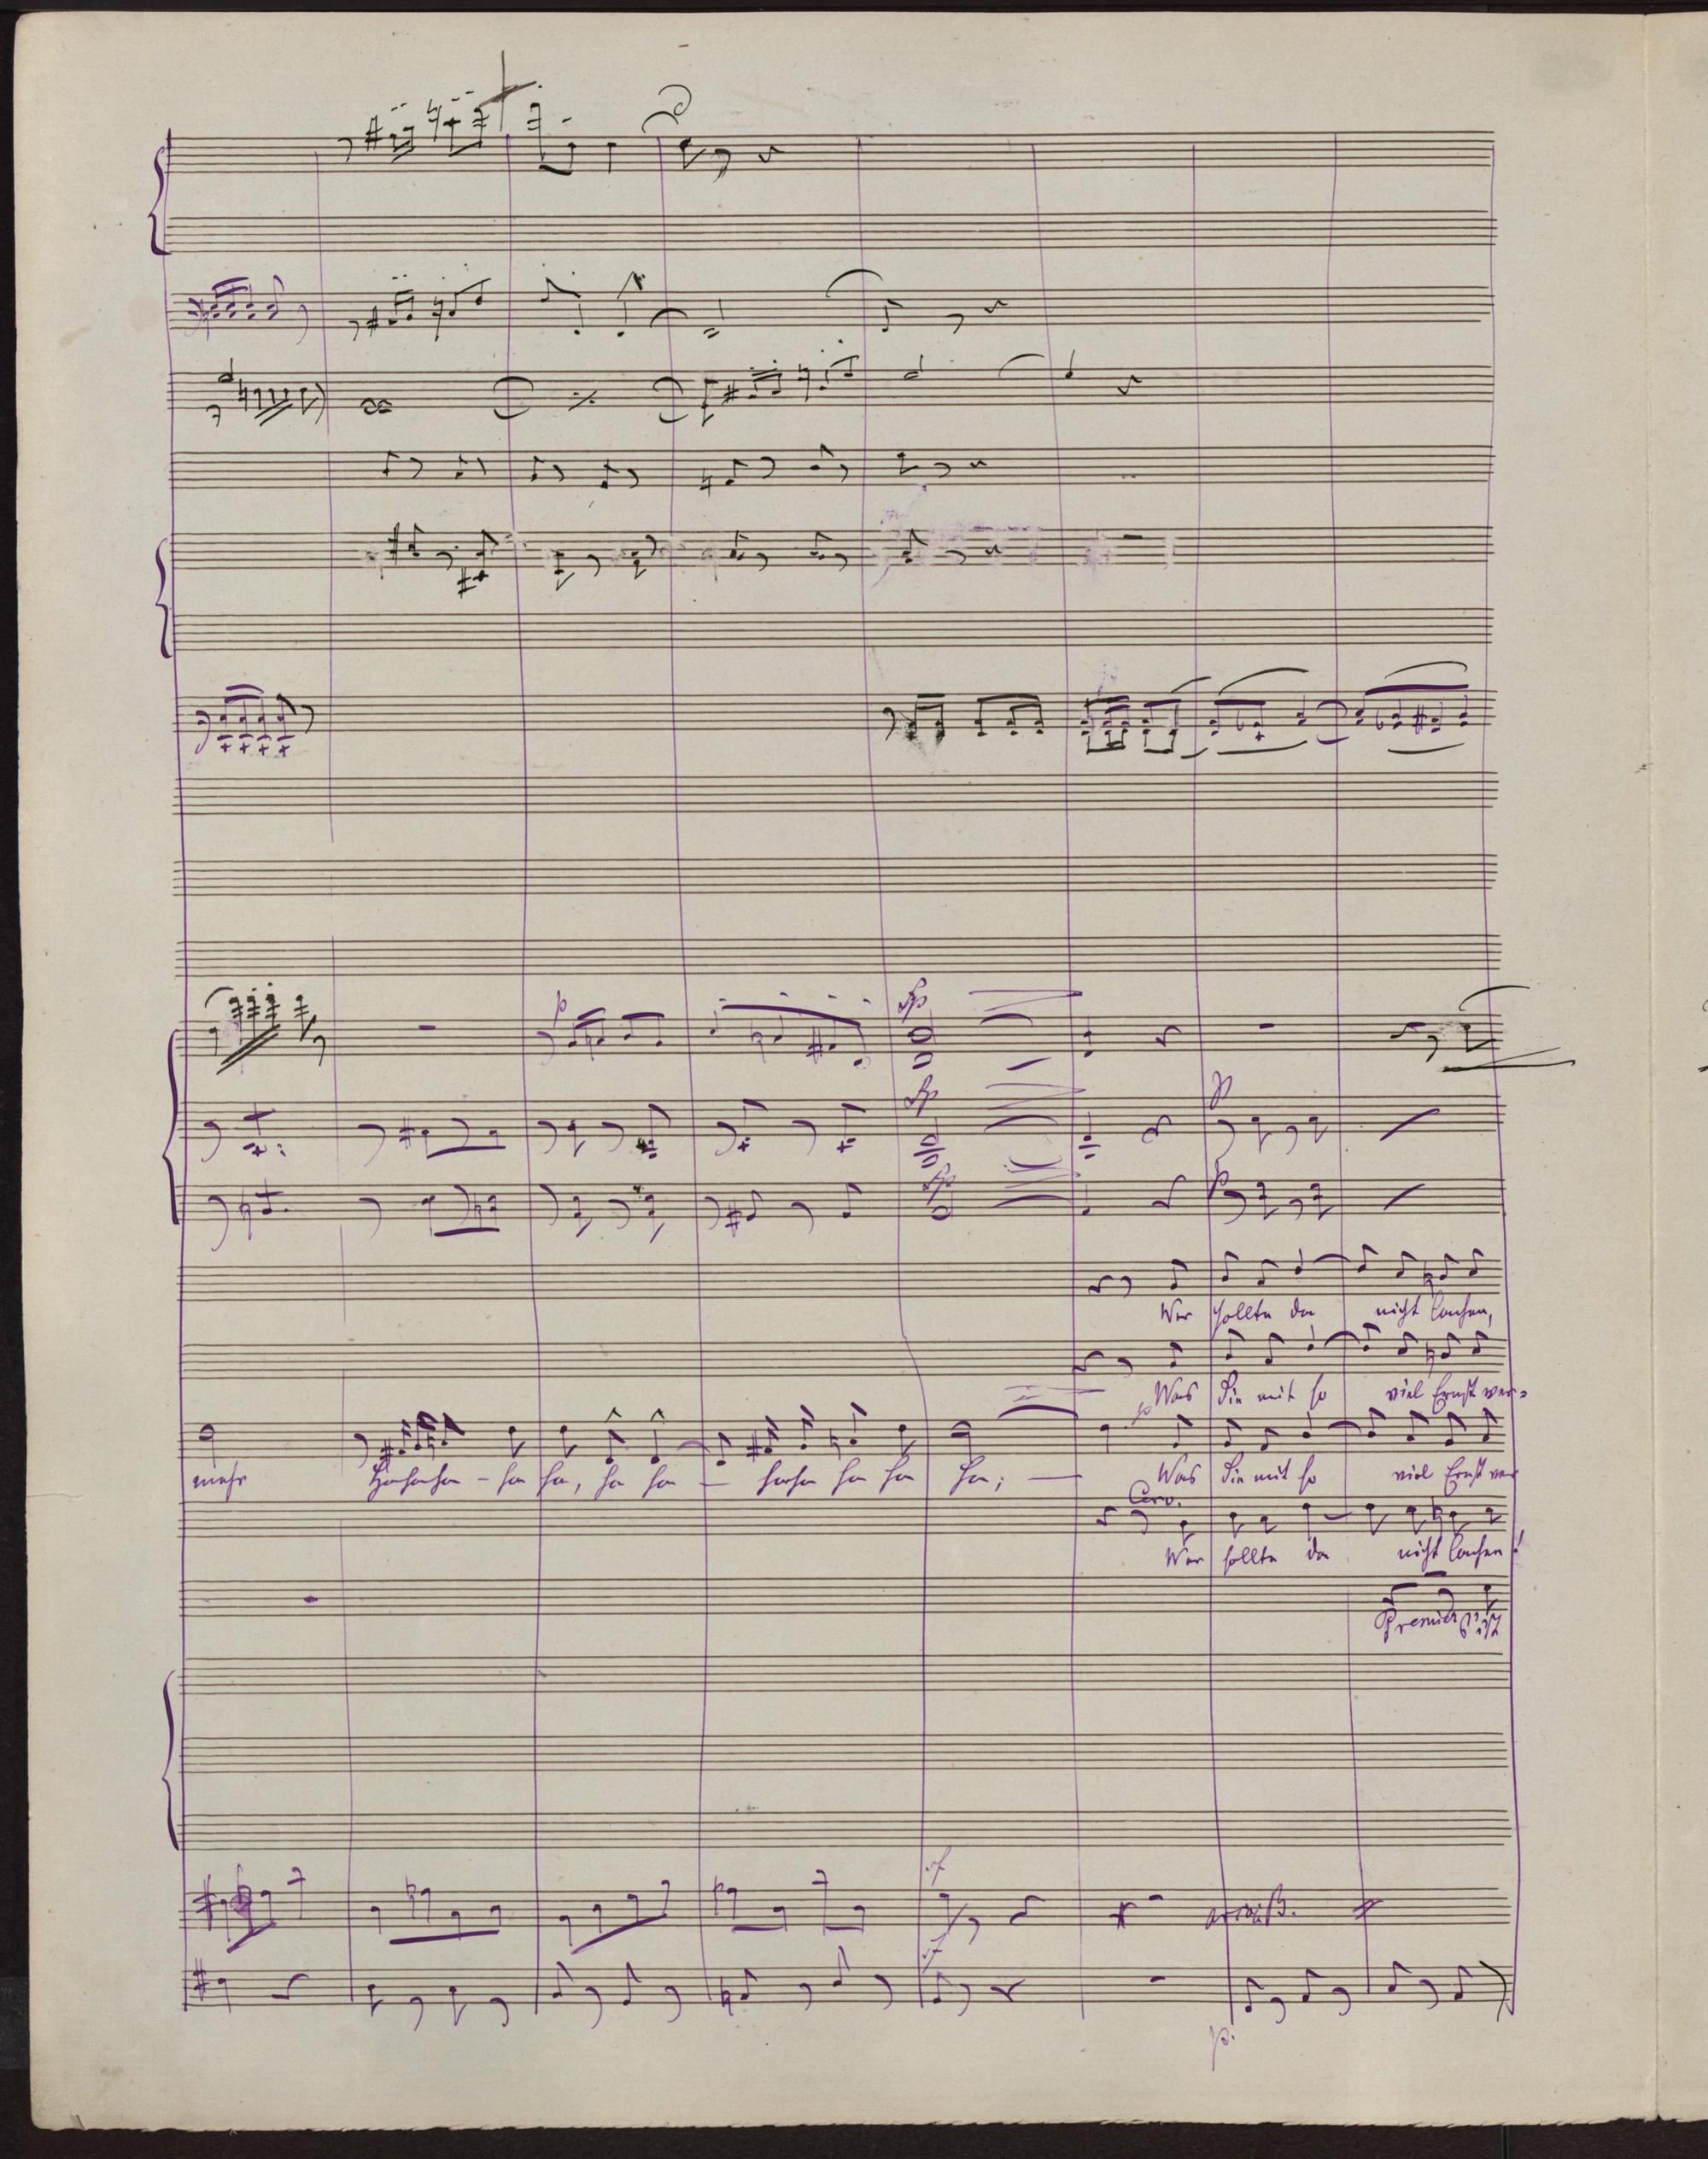 p
sfp
sfp
p
sfp
p
Wer sollte da nicht lachen,
Was Sie mit so viel Ernst ver-
mehr Hahaha - ha ha, ha ha - haha ha ha ha; Was Sie mit so viel Ernst ver
Wer sollte da nicht lachen!
Premier
sf
arco
sf
p.